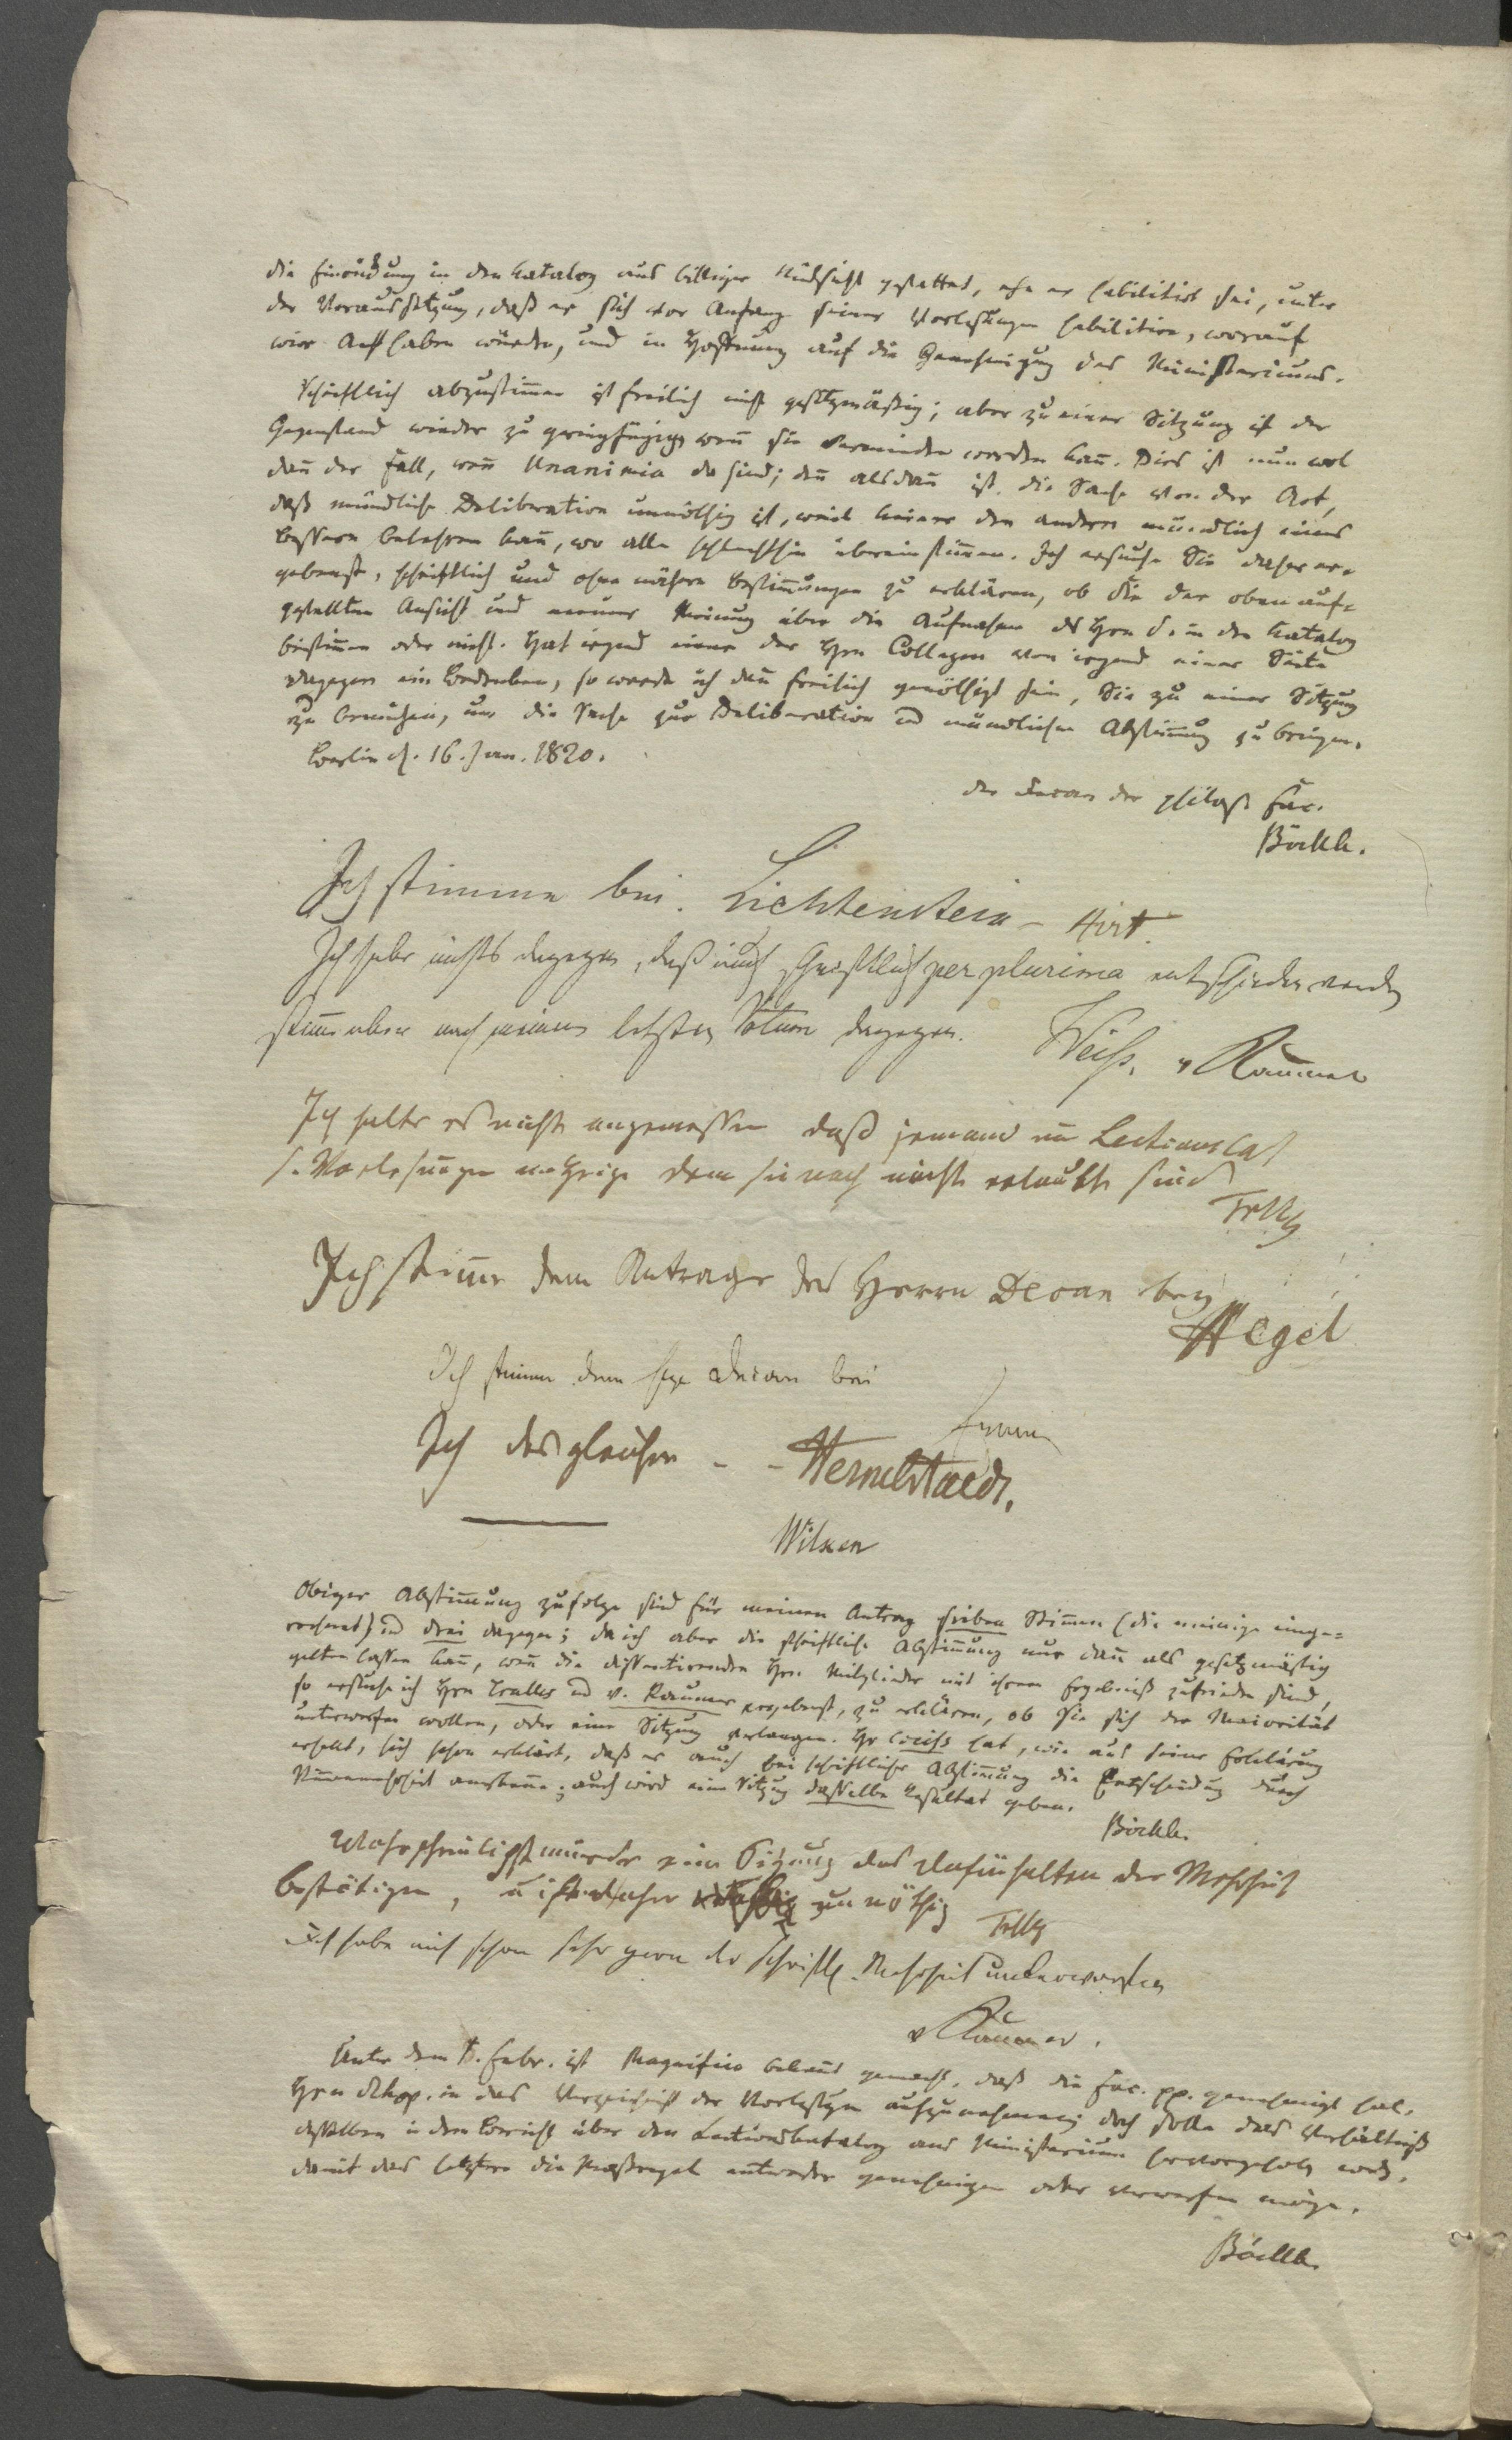 die Einrückung in den Katalog aus billiger Rücksicht gestattet, ehe er habilitirt sei, unter
der Voraussetzung, daß er sich vor Anfang seiner Vorlesungen habilitire, worauf
wir Acht haben würden, und in Hoffnung auf die Genehmigung des Ministeriums.
Schriftlich abzustim̄en ist freilich nicht gesetzmäßig; aber zu einer Sitzung ist der
Gegenstand wieder zu geringfügig, wen̄ sie vermieden werden kan̄. Dies ist nun wol
dan̄ der Fall, wen̄ Unanimia da sind; den̄ alsdan̄ ist die Sache von der Art,
daß mündliche Deliberation unnöthig ist, weil keiner den andern mündlich eines
Bessern belehren kan̄, wo alle schlechthin übereinstim̄en. Ich ersuche Sie daher er-
gebenst, schriftlich und ohne nähere Bestim̄ungen zu erklären, ob Sie der oben auf-
gestellten Ansicht und meiner Meinung über die Aufnahme des Hrn S. in den Katalog
beistim̄en oder nicht. Hat irgend einer der Hrn Collegen von irgend einer Seite
dagegen ein Bedenken, so werde ich dan̄ freilich genöthigt sein, Sie zu einer Sitzung
zu bemühen, um die Sache zur Deliberation und mündlichen Abstim̄ung zu bringen.
Berlin d. 16. Jan. 1820.
der Decan der philos. Fac.
Böckh.
Ich stimme bei. Lichtenstein – Hirt.
Ich habe nichts dagegen, daß auch schriftlich per plurima entschieden werde
stim̄e aber nach meinem letzten Votum dagegen. Weiß. v Raumer
Ich halte es nicht angemessen daß jemand im Lectionscat
s. Vorlesungen anzeige dem sie noch nicht erlaubt sind
Tralles
Ich stim̄e dem Antrage des Herrn Decan bey
Hegel
Ich stimme dem Hrn Decan bei
Erman
Ich desgleichen – – Hermbstaedt.
Wilken
Obiger Abstim̄ung zufolge sind für meinen Antrag sieben Stim̄en (die meinige einge-
rechnet) und drei dagegen; da ich aber die schriftliche Abstim̄ung nur dan̄ als gesetzmäßig
gelten lassen kan̄, wen̄ die dissentirenden Hrn. Mitglieder mit ihrem Ergebniß zufrieden sind,
so ersuche ich Hrn Tralles und v. Raumer ergebenst, zu erklären, ob Sie sich der Maiorität
unterwerfen wollen, oder eine Sitzung verlangen. Hr Weiß hat, wie aus seiner Erklärung
erhellt, sich schon erklärt, daß er auch bei schriftlicher Abstim̄ung die Entscheidung durch
Stim̄enmehrheit anerkenne; auch wird eine Sitzung dasselbe Resultat geben.
Böckh.
Wahrscheinlichst würde eine Sitzung das Dafürhalten der Mehrheit
bestätigen, u ist daher unnöthig Tralles
Ich habe mich schon sehr gern der schriftl. Mehrheit unterworfen
v Raumer.
Unter dem Febr. ist Magnifico bekan̄t gemacht, daß die Fac. pp. genehmigt hat,
Hrn Schop. in das Verzeichniß der Vorlesungen aufzunehmen; doch solle das Verhältniß
desselben in dem Bericht über den Lectionskatalog ans Ministerium hervorgehob. werd.
damit das letztere die Maßregel entweder genehmigen oder verwerfen möge.
Böckh.